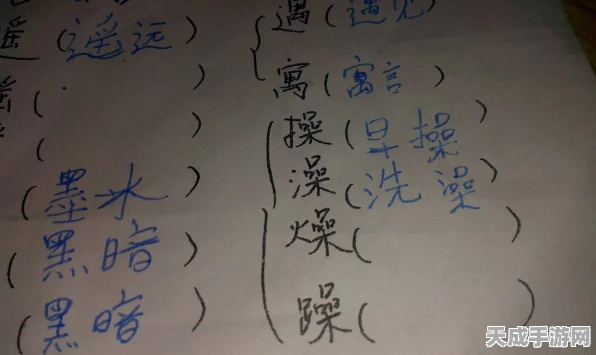 遥(遥远) 遇(遇见)
( ) 寓(寓言)
( ) 操(早操)
(墨水) 澡(洗澡)
(黑暗) 燥( )
(黑暗) 躁( )
天成手游网